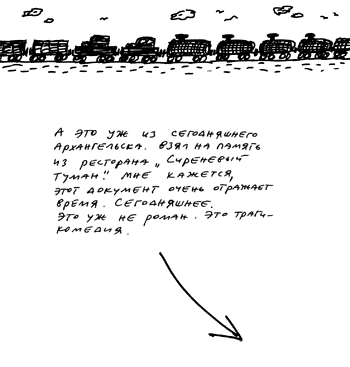 А ЭТО УЖ ИЗ СЕГОДНЯШНЕГО
АРХАНГЕЛЬСКА. ВЗЯЛ НА ПАМЯТЬ
ИЗ РЕСТОРАНА „СИРЕНЕВЫЙ
ТУМАН". МНЕ КАЖЕТСЯ,
ЭТОТ ДОКУМЕНТ ОЧЕНЬ ОТРАЖАЕТ
ВРЕМЯ. СЕГОДНЯШНЕЕ.
ЭТО УЖ НЕ РОМАН. ЭТО ТРАГИ-
КОМЕДИЯ.